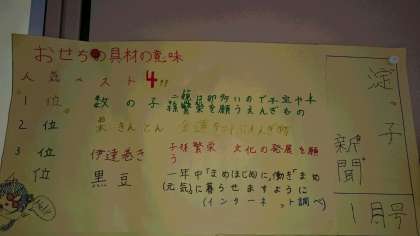 おせちの具材の意味
人気ベスト4
1位 数の子
二親は卵多いので子宝や子
孫繁栄を願うえんぎもの
2位 栗きんとん
3位 伊達巻き 子孫繁栄 文化の発展を願
う
位 黒豆 一年中「まめ(まじめ)に」働き「まめ
(元気)に暮らせますように
(インターネット調べ)
淀
子
新聞
1月号